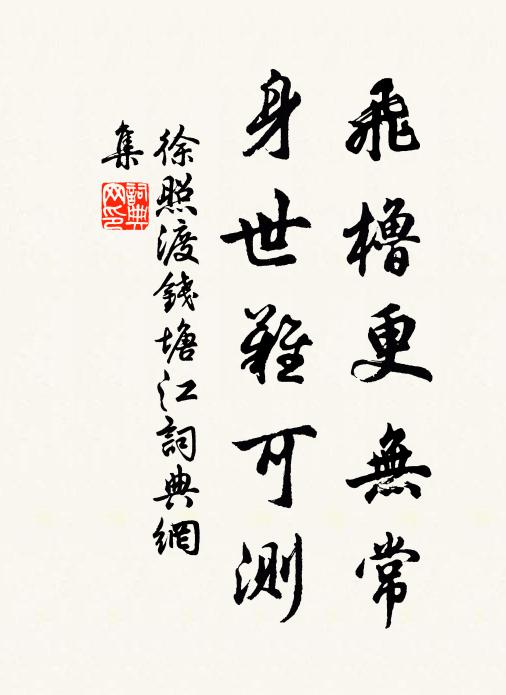 飛櫓更無常
身世難可測
徐照渡錢塘江詞典網
集
詞典
网印